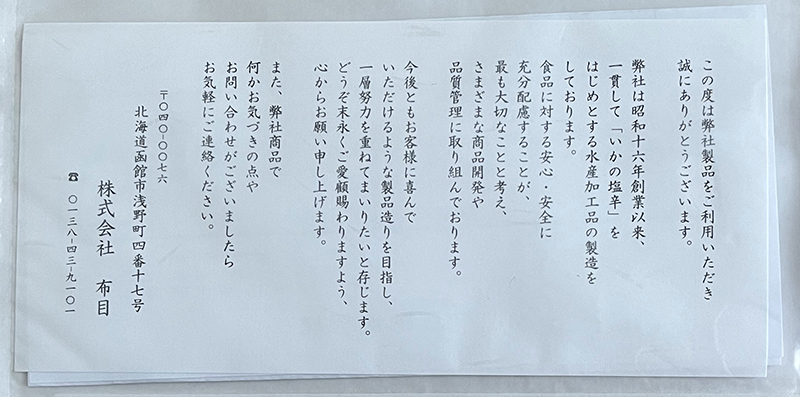 この度は弊社製品をご利用いただき
誠にありがとうございます。
弊社は昭和十六年創業以来、
一貫して「いかの塩辛」を
はじめとする水産加工品の製造を
しております。
食品に対する安心・安全に
充分配慮することが、
最も大切なことと考え、
さまざまな商品開発や
品質管理に取り組んでおります。
今後ともお客様に喜んで
いただけるような製品造りを目指し、
一層努力を重ねてまいりたいと存じます。
どうぞ末永くご愛顧賜わりますよう、
心からお願い申し上げます。
また、弊社商品で
何かお気づきの点や
お問い合わせがございましたら
お気軽にご連絡ください。
〒〇四〇-〇〇七六
北海道函館市浅野町四番十七号
株式会社 布目
☎ 〇一三八-四三-九一〇一